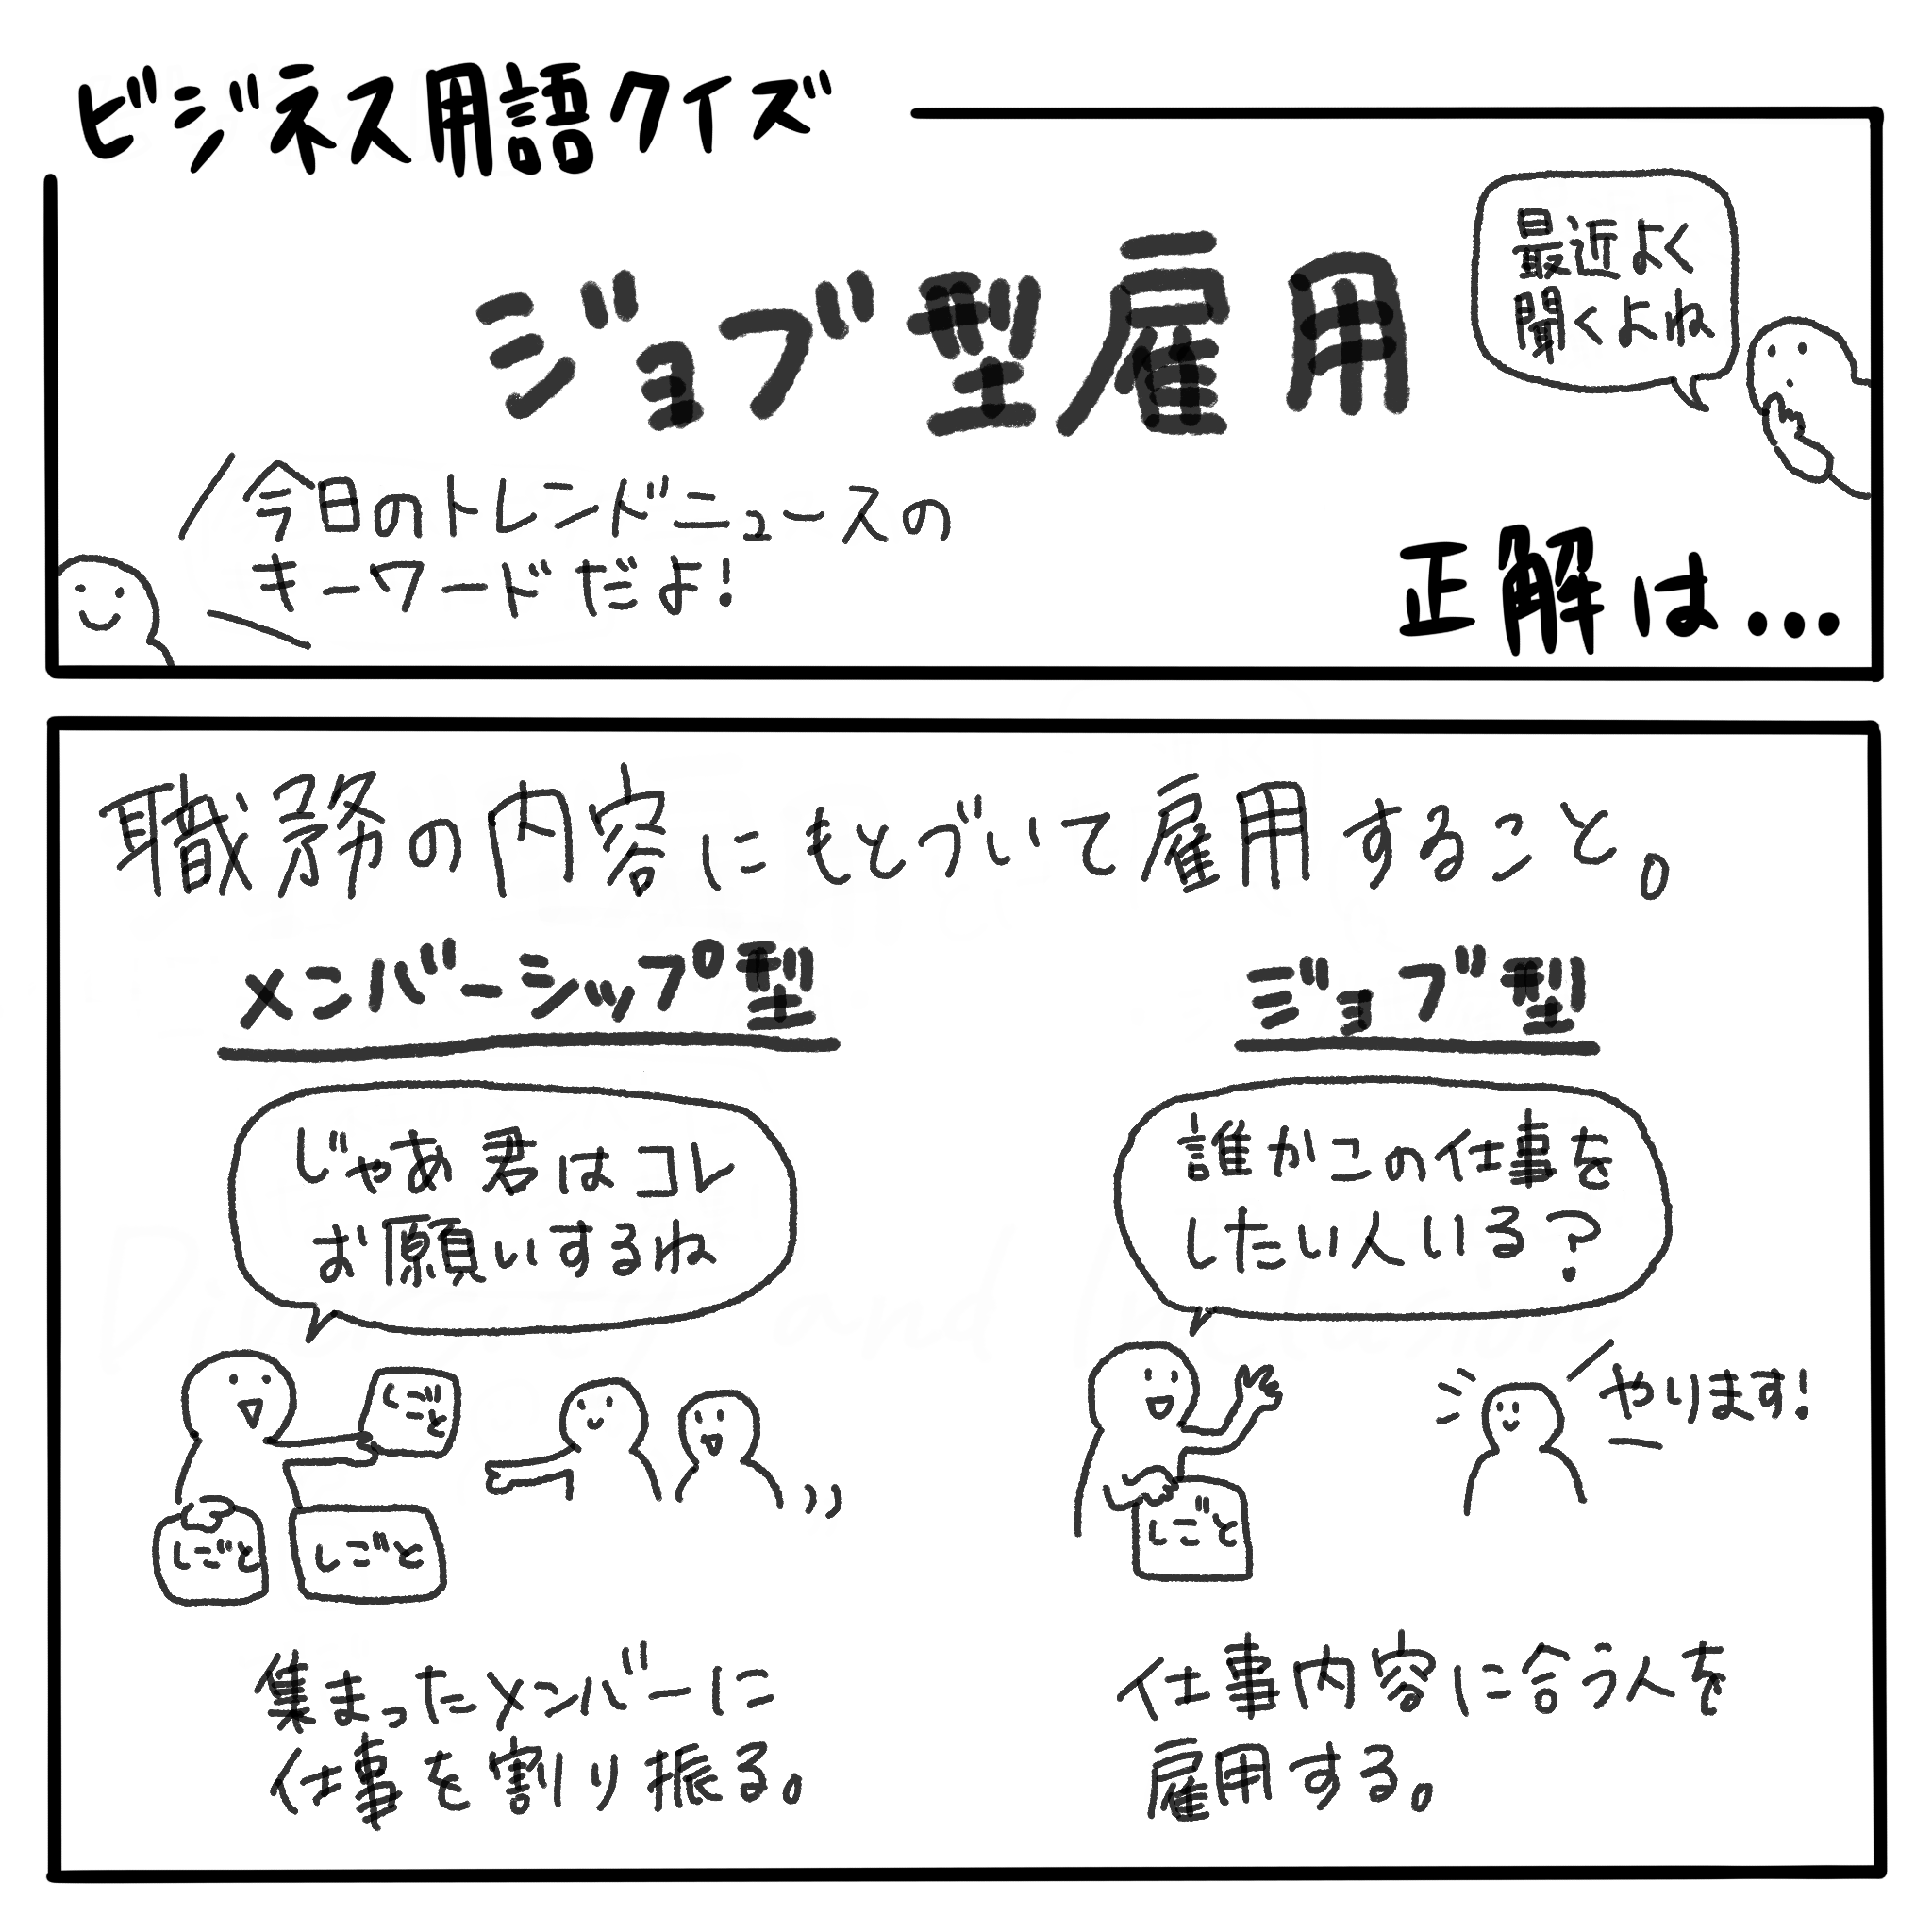 ビジネス用語クイズ
ジョブ型雇用
最近よく
聞くよね
今日のトレンドニュースの
キーワードだよ!
正解は...
職務の内容にもとづいて雇用すること。
メンバーシップ型
じゃあ君はコレ
お願いするね
しごと
しごと
しごと
集まったメンバーに
仕事を割り振る。
ジョブ型
誰かこの仕事を
したい人いる?
やります!
しごと
仕事内容に合う人を
雇用する。